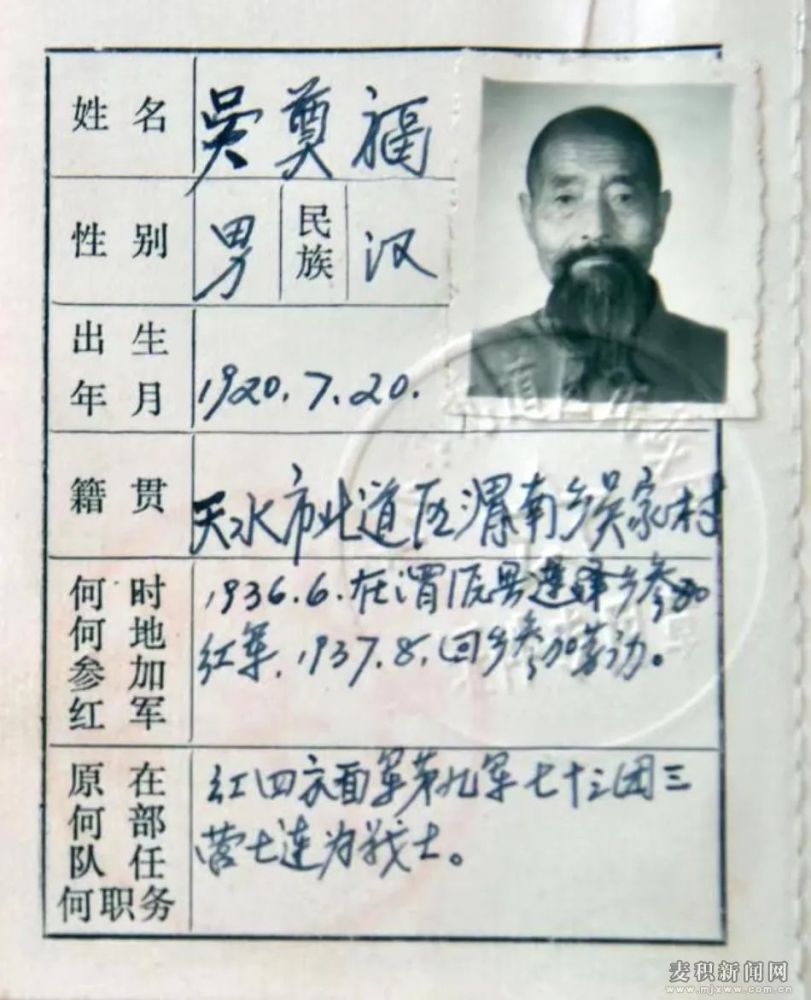 姓名 吴奠福
性别 男 民族 汉
出生年月 1920.7.20.
籍贯 天水市北道区渭南乡吴家村
何时何地参加红军 1936.6.在渭源县莲峰乡参加
红军，1937.8.回乡参加劳动。
原在何部队任何职务 红四方面军第九军七十三团三
营七连为战士。
麦积新闻网
www.mjxww.com.cn